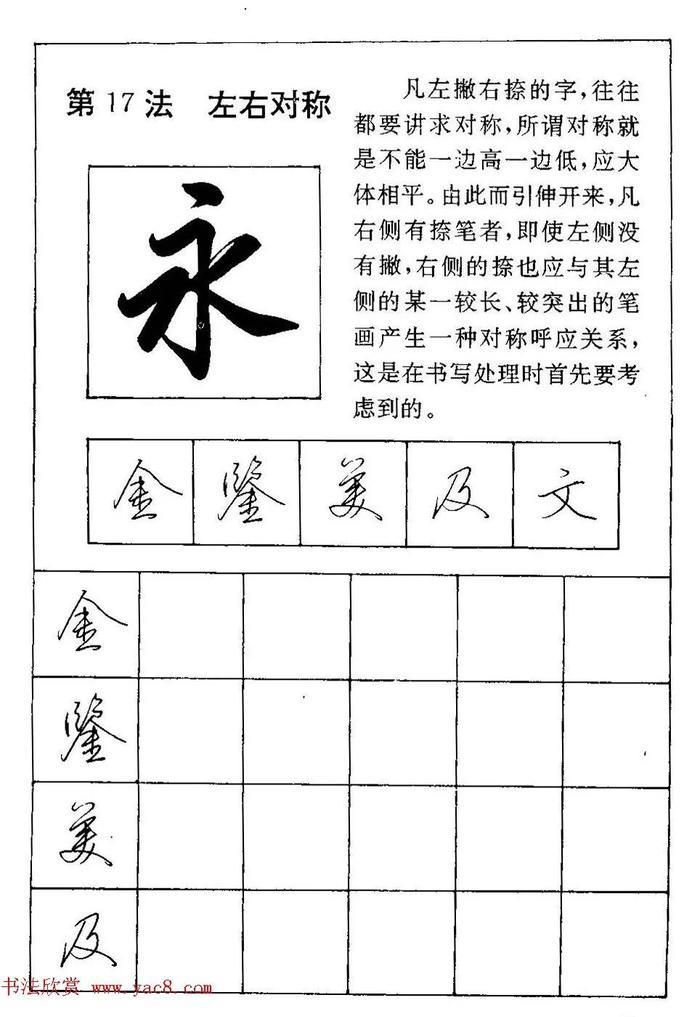 第17法 左右对称
凡左撇右捺的字，往往
都要讲求对称，所谓对称就
是不能一边高一边低，应大
体相平。由此而引伸开来，凡
右侧有捺笔者，即使左侧没
有撇，右侧的捺也应与其左
侧的某一较长、较突出的笔
画产生一种对称呼应关系，
这是在书写处理时首先要考
虑到的。
永
金 鑒 美 及 文
金
鑒
美
及
书法欣赏 www.yac8.com